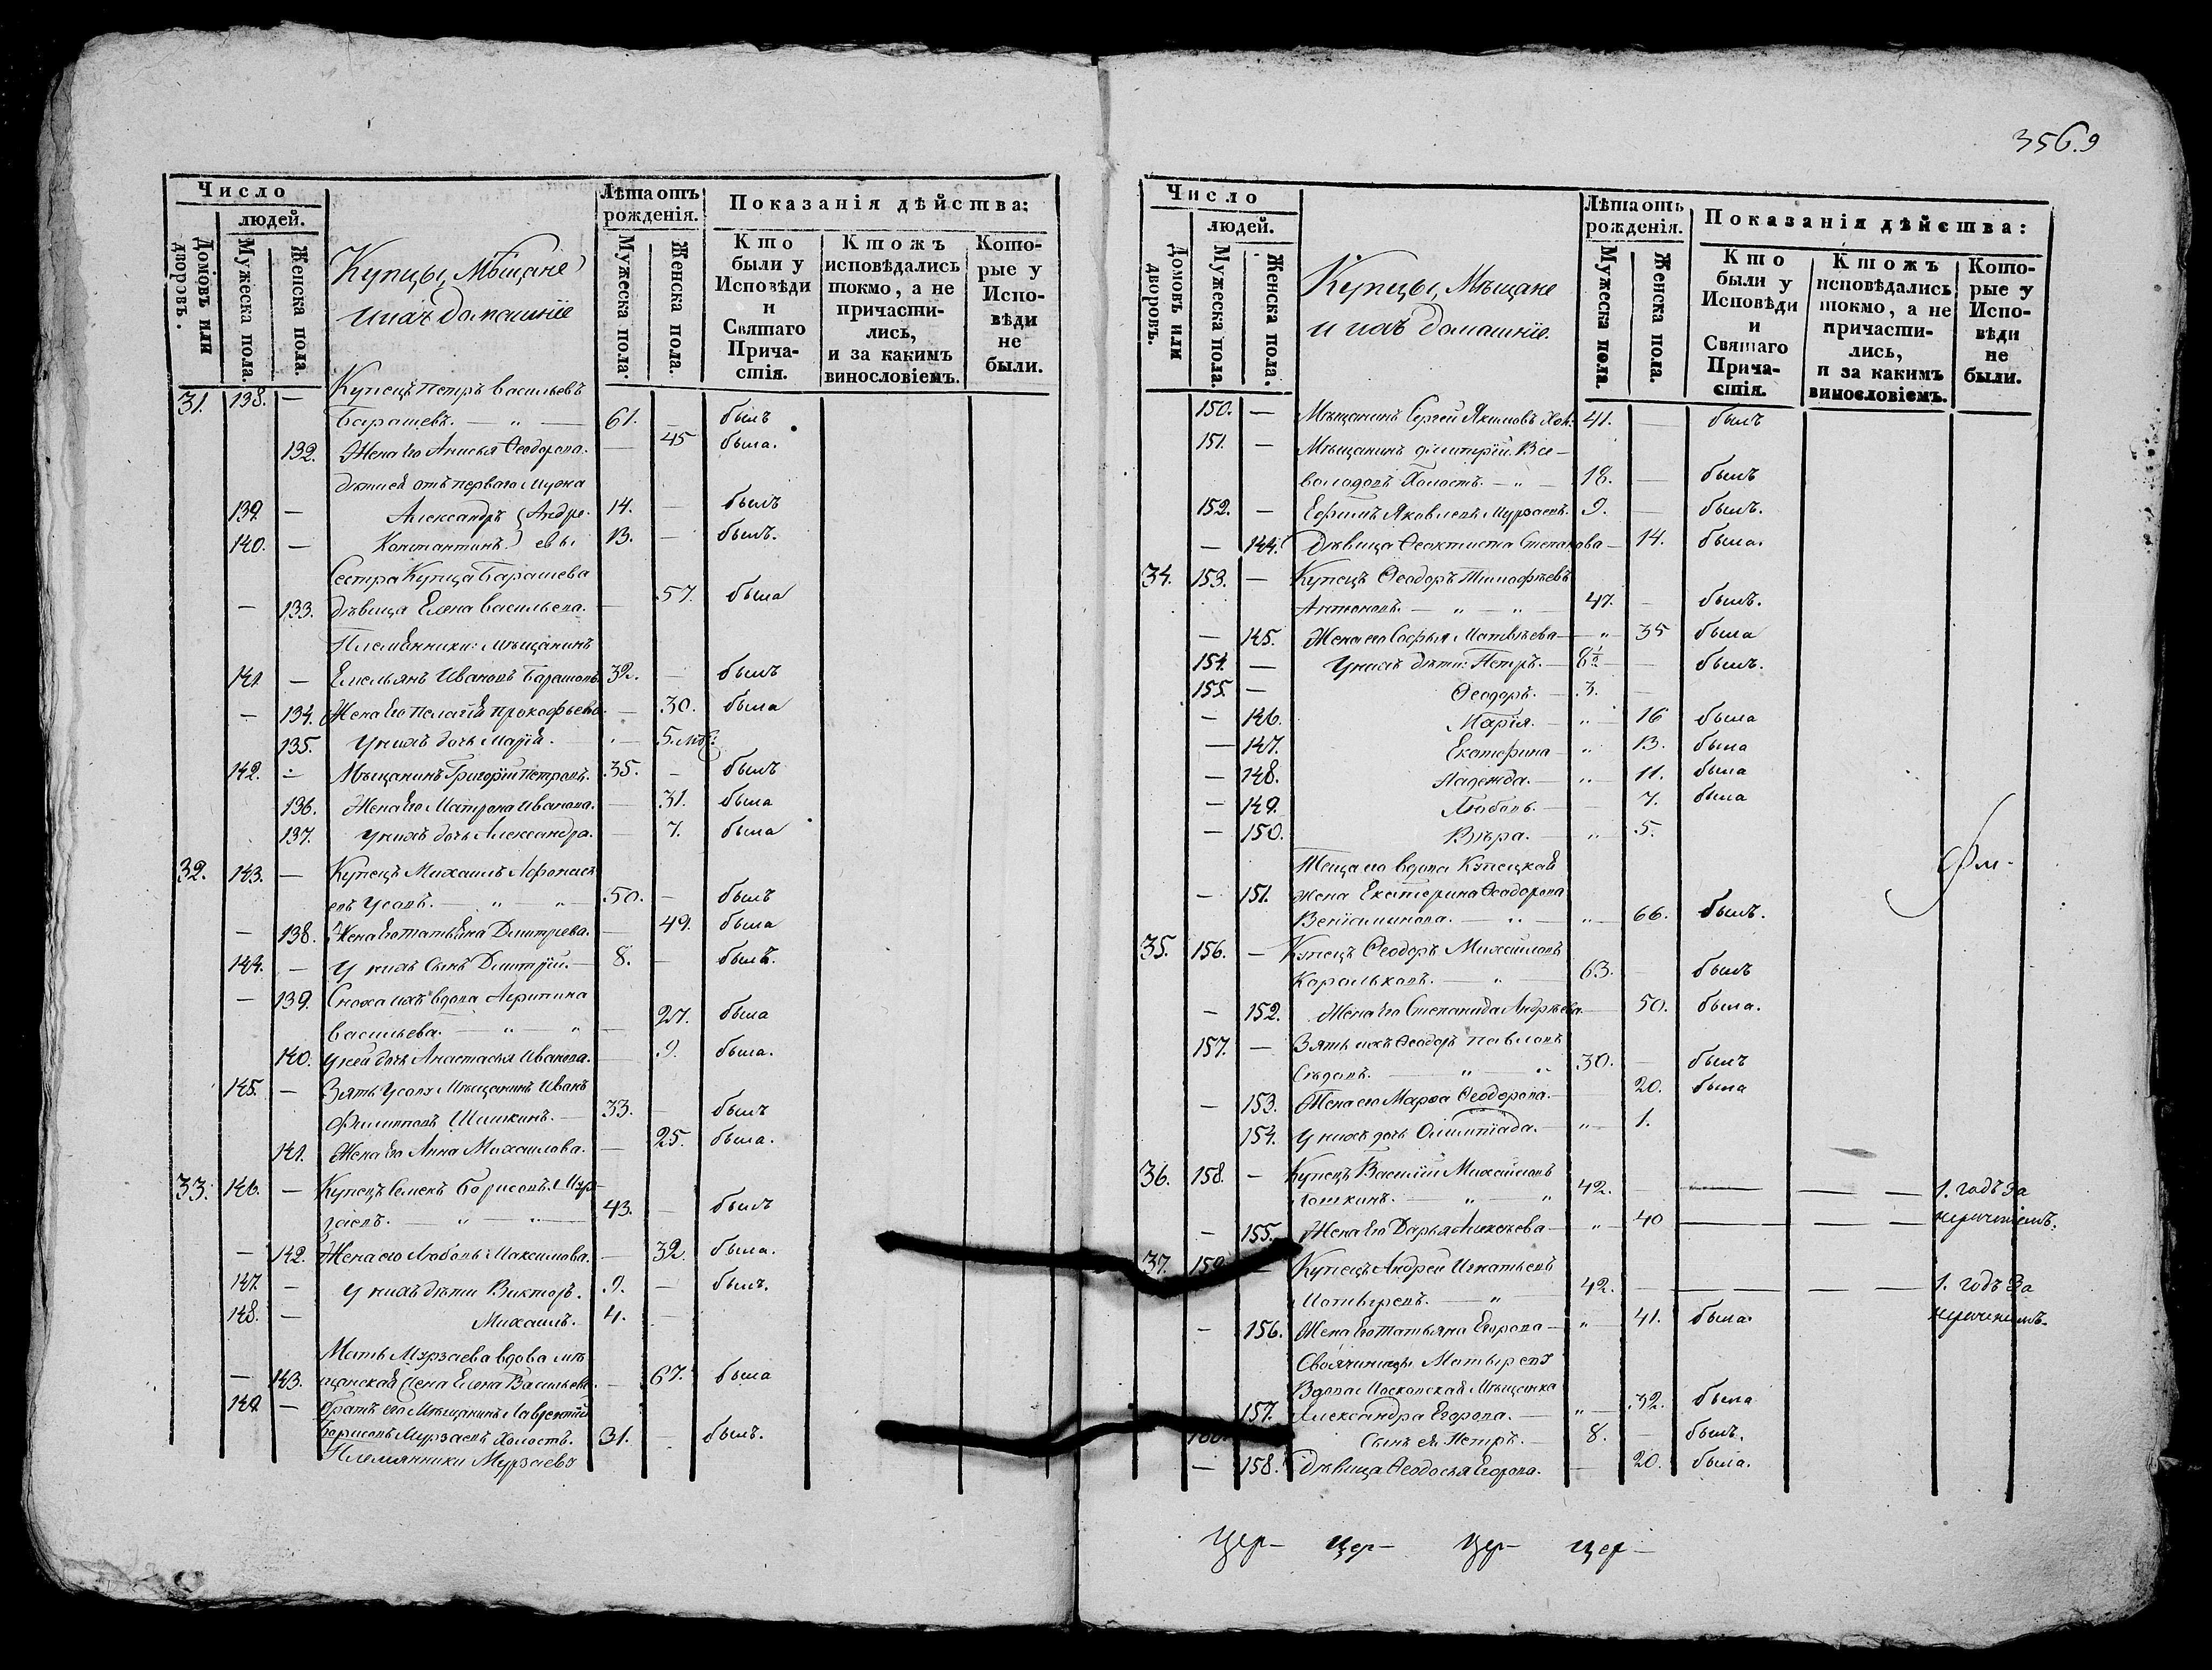 356. 9
Число
людей.
Домовъ или дворовъ.
Мужеска пола.
Женска пола.
Купцы, Мѣщане
и ихъ домашнїе
Лѣта отъ рожденія.
Мужеска пола.
Женска пола.
Показанія дѣйства:
Кто были у Исповѣди и Святаго Причастія.
Ктожъ исповѣдались токмо, а не причастились, и за какимъ винословіемъ.
Которые у Исповѣди не были.
31. 138. — Купецъ Петръ Васильевъ
Барашевъ. — „ — 61. — былъ
132. Жена его Анисья Ѳеодорова. — 45 была.
дѣти ея отъ перваго мужа
139. — Александръ } Андре- 14. — былъ
140. — Константинъ } евы 13. — былъ.
Сестра Купца Барашева
— 133. дѣвица Елена Васильева. — 57. была
Племянники: мѣщанинъ
141. — Емельянъ Ивановъ Барашовъ 32. — былъ
— 134. Жена его Пелагїя Прокофьева. — 30. была
135. У нихъ дочь Марїя. — 5. мѣс:
142. — Мѣщанинъ Григорїй Петровъ. 35. — былъ
136. Жена его Матрона Иванова. — 31. была
137. У нихъ дочь Александра. — 7. была
32. 143. — Купецъ Михаилъ Афонась
евъ Усовъ. — „ — „ — 50. — былъ
— 138. Жена его Татьяна Дмитрїева. — 49. была
144. — У нихъ сынъ Дмитрїй. — 8. — былъ.
— 139. Сноха ихъ вдова Агрипина
Васильева. — „ — „ — 27. была
140. У ней дочь Анастасья Иванова. — 9. была.
145. — Зять Усова Мѣщанинъ Иванъ
Филиповъ Шишкинъ. — 33. — былъ
141. Жена его Анна Михаилова. — 25. была.
33. 146. — Купецъ Семенъ Борисовъ Мур-
заевъ. — „ — „ — 43. — былъ
— 142. Жена его Любовь Максимова. — 32. была.
147. — У нихъ дѣти Викторъ. 9. — былъ.
148. — Михаилъ. 4. —
Мать Мурзаева вдова мѣ
— 143. щанская жена Елена Васильева. — 67. была
149. — братъ его Мѣщанинъ Лаврентїй
Борисовъ Мурзаевъ холостъ. 31. — былъ.
Племянники Мурзаева
Число
людей.
Домовъ или дворовъ.
Мужеска пола.
Женска пола.
Купецы, Мѣщане
и ихъ домашнїе.
Лѣта отъ рожденія.
Мужеска пола.
Женска пола.
Показанія дѣйства:
Кто были у Исповѣди и Святаго Причастія.
Ктожъ исповѣдались токмо, а не причастились, и за какимъ винословіемъ.
Которые у Исповѣди не были.
150. — Мѣщанинъ Сергей Якимовъ Хол: 41. — былъ
151. — Мѣщанинъ Димитрїй Все-
володовъ Холостъ. — „ — 18. — былъ
152. — Ефимъ Яковлевъ Мурзаевъ. 9. — былъ.
— 144. Дѣвица Ѳеоктиста Степанова — 14. была.
34. 153. — Купецъ Ѳеодоръ Тимофѣевъ
Антоновъ. — „ — „ — 47. — былъ.
— 145. Жена его Софья Матвѣева — „ — 35 была
154. — У нихъ дѣти: Петръ. — 8½ — былъ.
155. — Ѳеодоръ. — 3. —
— 146. Марїя. — „ — 16 была
— 147. Екатерина — „ 13. была
— 148. Надежда. — „ 11. была
— 149. Любовь. — 7. была
— 150. Вѣра. — „ — 5.
Теща его вдова Купецкая
— 151. жена Екатерина Ѳеодорова
Венїаминова. — „ — „ — 66. былъ.
35. 156. — Купецъ Ѳеодоръ Михаиловъ
Корольковъ. — „ — 63. — былъ
— 152. Жена его Степанида Андрѣева. — 50. была.
157. — Зять ихъ Ѳеодоръ Павловъ
Сѣдовъ. — „ — „ 30. — былъ
— 153. Жена его Марѳа Ѳеодорова. — 20. была
154. У нихъ дочь Олимпїада. — „ — 1.
36. 158. — Купецъ Василїй Михаиловъ
— „ — „ 42. — — — — 1. годъ за
— 155. Жена его Дарья — „ — 40 — — —
37. 159. — Купецъ Андрей Игнатьевъ
— „ — 42. — — — — 1. годъ за
— 156. Жена его Татьяна Егорова — „ — 41. была.
Своячиницы
Вдова Московская Мѣщанка
157. Александра Егорова. — „ — 32. была
160. Сынъ ея Петръ. — 8. — былъ.
— 158. Дѣвица Ѳеодосья Егорова. — 20. была.
Цер- Цер- Цер- Цер-